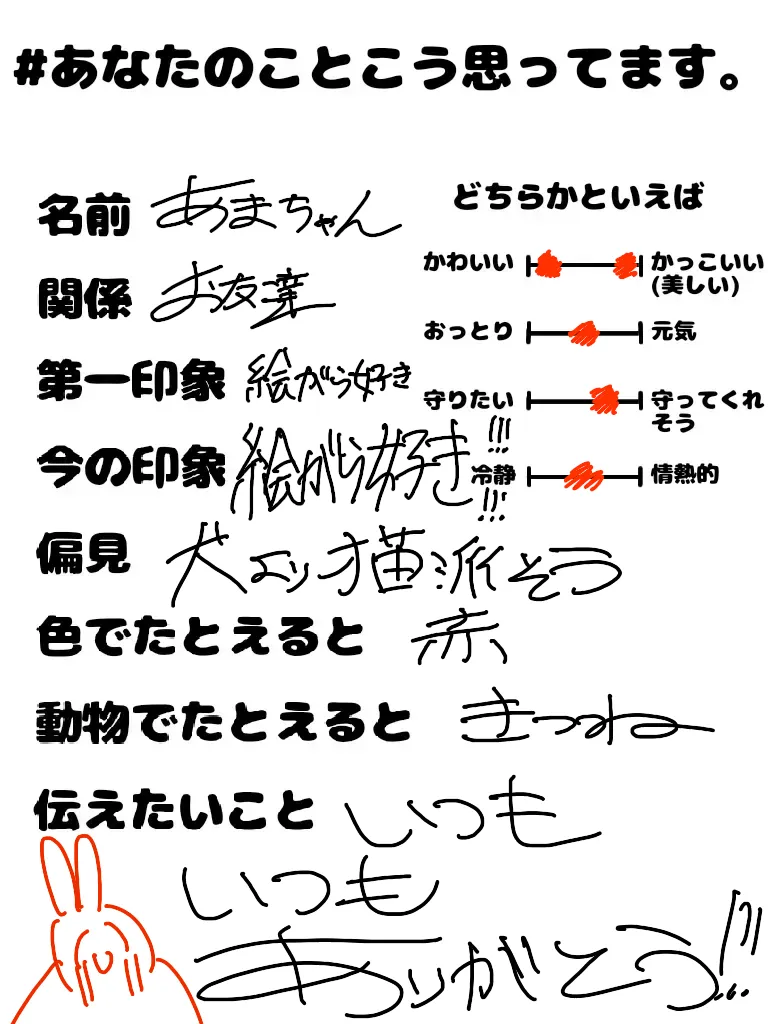 #あなたのことこう思ってます。
名前 あまちゃん
関係 お友達
第一印象 絵がら好き
今の印象 絵がら好き!!!!!!
偏見 犬エッオ猫派そう
色でたとえると 赤
動物でたとえると きつね
伝えたいこと いつも
いつも
ありがとう!!!
どちらかといえば
かわいい かっこいい
(美しい)
おっとり 元気
守りたい 守ってくれ
そう
冷静 情熱的